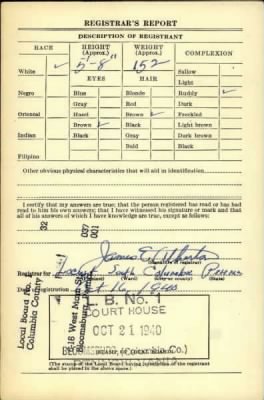 REGISTRAR'S REPORT
DESCRIPTION OF REGISTRANT
RACE
HEIGHT (Approx.)
WEIGHT (Approx.)
COMPLEXION
White ✓
5'-8"
152
Sallow
EYES
HAIR
Light
Negro
Blue
Blonde
Ruddy ✓
Gray
Red
Dark
Oriental
Hazel
Brown ✓
Freckled
Brown ✓
Black
Light brown
Indian
Black
Gray
Dark brown
Bald
Black
Filipino
Other obvious physical characteristics that will aid in identification
I certify that my answers are true; that the person registered has read or has had
read to him his own answers; that I have witnessed his signature or mark and that
all of his answers of which I have knowledge are true, except as follows:
32
007
001
James E.
Registrar for South Columbia Penna
Date of registration 16, 1940
Local Board No.
Columbia County
West Main St.
Bloomsburg
L. B. No. 1
COURT HOUSE
OCT 21 1940
(STAMP OF LOCAL BOARD)
(The stamp of the Local Board having jurisdiction of the registrant
shall be placed in the above space.)